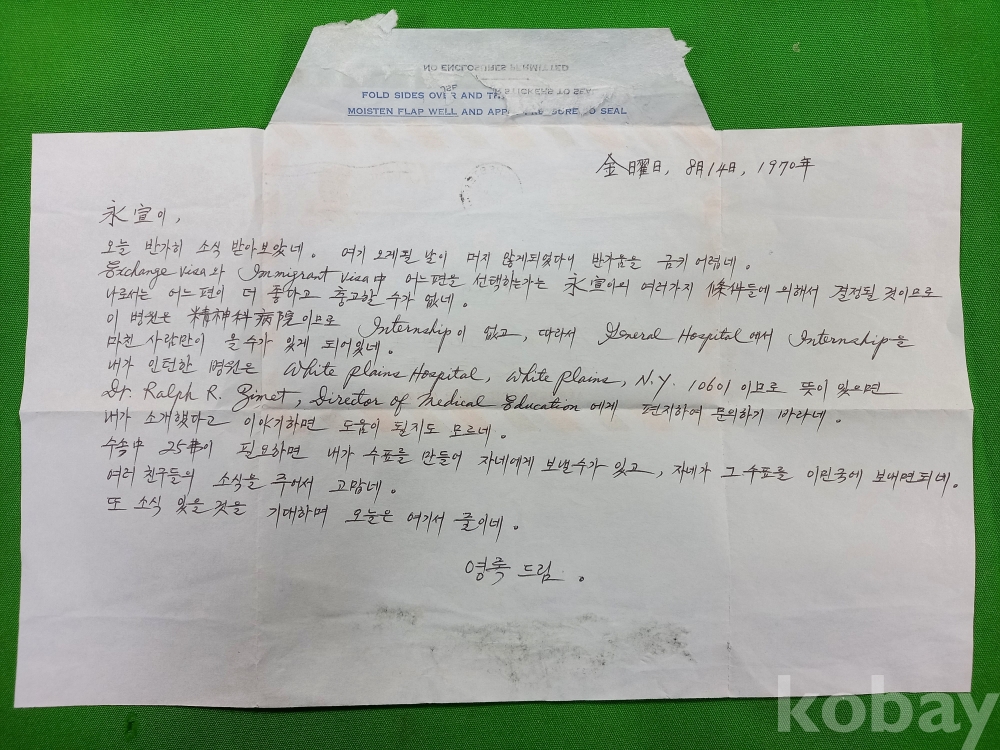 NO ENCLOSURES PERMITTED
FOLD SIDES OVER AND TH STICKERS TO SEAL
MOISTEN FLAP WELL AND APP SURE TO SEAL
金曜日, 8月14日, 1970年
永宣이,
오늘 반가히 소식 받아보았네. 여기 오게될 날이 머지 않게되었다니 반가움을 금키 어렵네.
Exchange visa와 Immigrant visa中 어느편을 선택하는가는 永宣이의 여러가지 條件들에 의해서 결정될 것이므로
나로서는 어느편이 더 좋다고 충고할 수가 없네.
이 병원은 精神科病院이므로 Internship이 없고, 따라서 General Hospital에서 Internship을
마친 사람만이 올 수가 있게 되어있네.
내가 인턴한 병원은 White Plains Hospital, White Plains, N.Y. 10601 이므로 뜻이 있으면
Dr. Ralph R. Director of Medical Education 에게 편지하여 문의하기 바라네.
내가 소개했다고 이야기하면 도움이 될지도 모르네.
수속中 25$이 필요하면 내가 수표를 만들어 자네에게 보낼수가 있고, 자네가 그 수표를 이민국에 보내면되네.
여러 친구들의 소식을 주어서 고맙네.
또 소식 있을 것을 기대하며 오늘은 여기서 줄이네.
영록 드림.
kobay